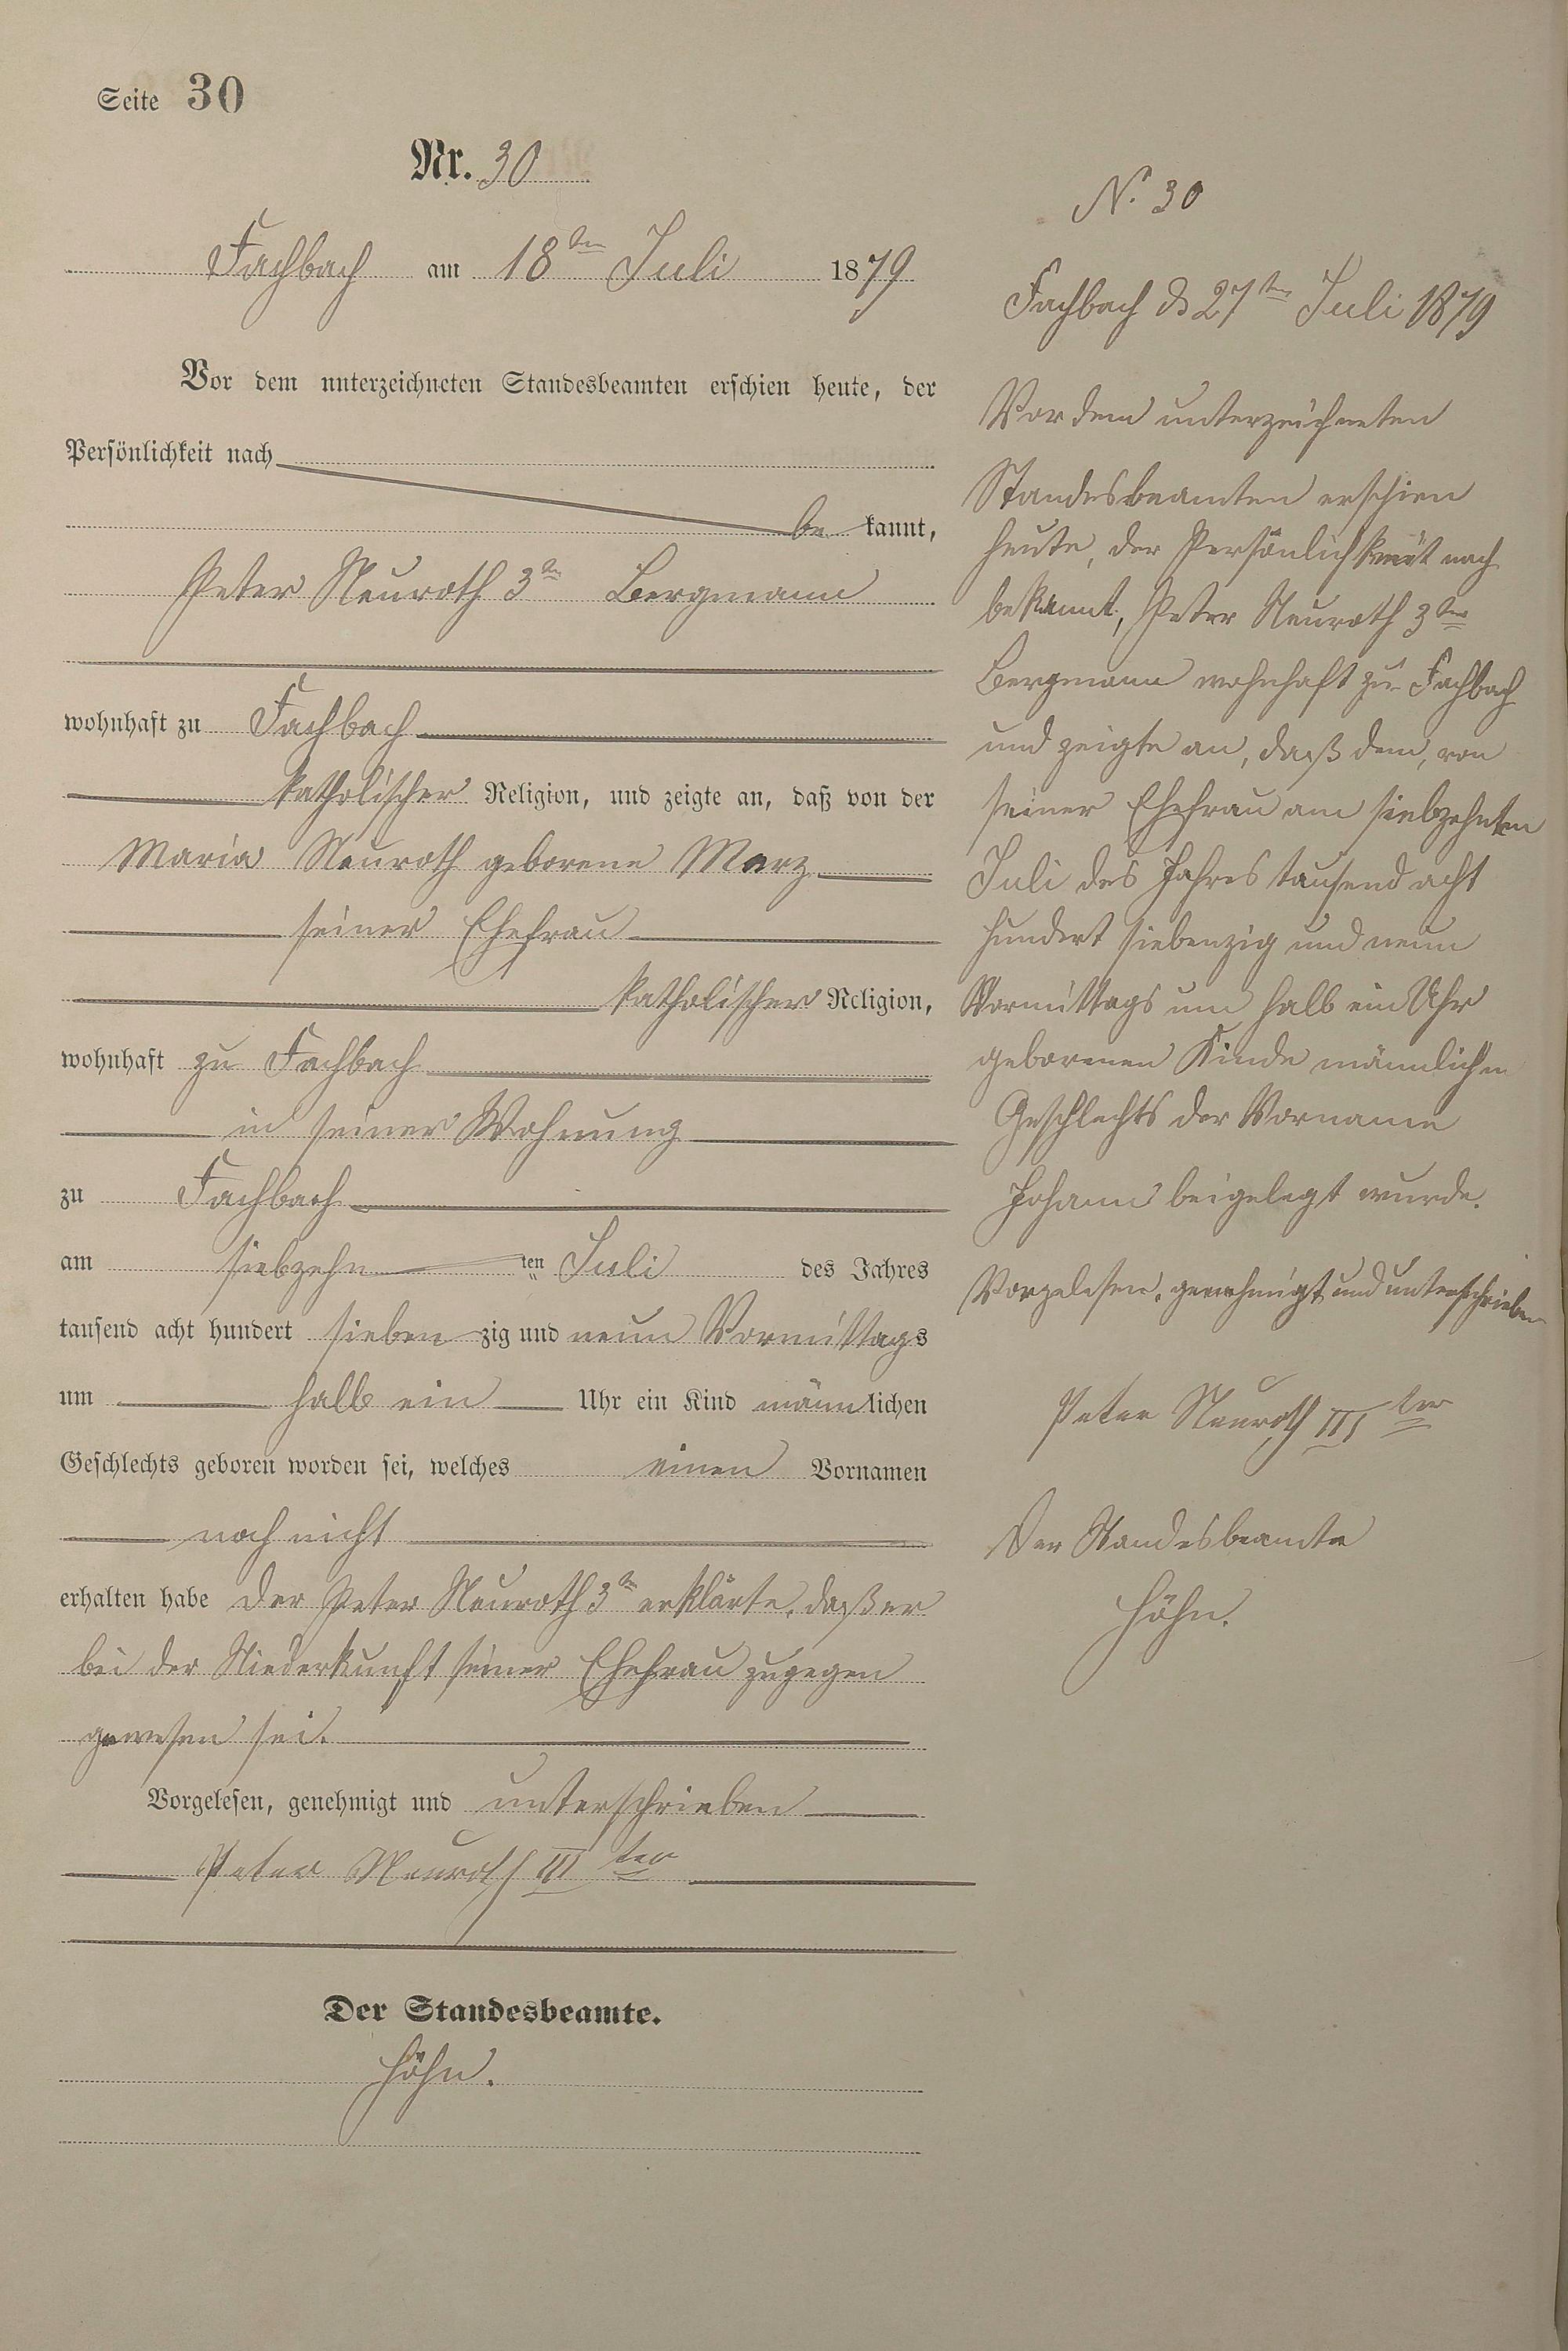 Seite 30
Nr. 30
Fachbach am 18ten Juli 1879
Vor dem unterzeichneten Standesbeamten erschien heute, der
Persönlichkeit nach
be kannt,
Peter Neuroth 3ter Bergmann
wohnhaft zu Fachbach
katholischer Religion, und zeigte an, daß von der
Maria Neuroth geborene Merz
seiner Ehefrau
katholischer Religion,
wohnhaft zu Fachbach
in seiner Wohnung
zu Fachbach
am siebzehn ten Juli des Jahres
tausend acht hundert sieben zig und neun Vormittags
um halb ein Uhr ein Kind männlichen
Geschlechts geboren worden sei, welches einen Vornamen
noch nicht
erhalten habe Der Peter Neuroth 3ter erklärte, daß er
bei der Niederkunft seiner Ehefrau zugegen
gewesen sei.
Vorgelesen, genehmigt und unterschrieben
Peter Neuroth III ter
Der Standesbeamte.
Höhn.
N. 30
Fachbach d 27ten Juli 1879
Vor dem unterzeichneten
Standesbeamten erschien
heute, der Persönlichkeit nach
bekannt, Peter Neuroth 3ter
Bergmann wohnhaft zu Fachbach
und zeigte an, daß dem, von
seiner Ehefrau am siebzehnten
Juli des Jahres tausend acht
hundert siebenzig und neun
Vormittags um halb ein Uhr
geborenen Kinde männlichen
Geschlechts der Vorname
Johann beigelegt wurde.
Vorgelesen, genehmigt und unterschrieben
Peter Neuroth III ter
Der Standesbeamte
Höhn.